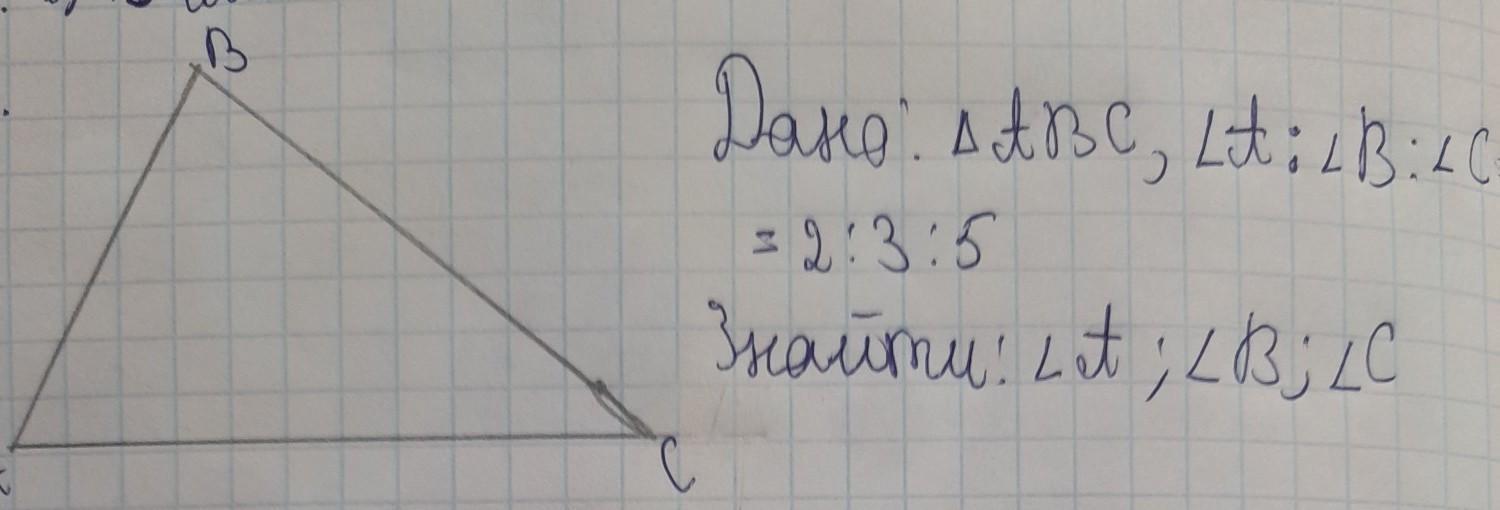 B
Дано: △ABC, ∠A:∠B:∠C
= 2:3:5
Знайти: ∠A; ∠B; ∠C
C